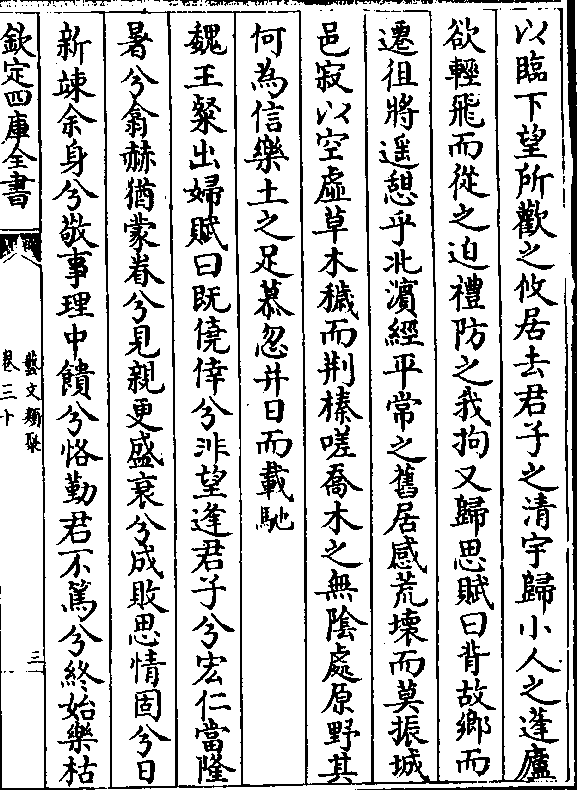 以臨下望所歡之攸居去君子之清宇歸小人之蓬廬
欲輕飛而從之迫禮防之我拘又歸思賦曰背故鄉而
遷徂將遥憩乎北濱經平常之舊居感荒壊而莫振城
邑寂以空虛草木穢而荆榛嗟喬木之無陰處原野其
何為信樂土之足慕忽幷日而載馳
魏王粲出婦賦曰既僥倖兮非望逢君子兮宏仁當隆
暑兮翕赫猶蒙眷兮見親更盛衰兮成敗思情固兮日
新竦余身兮敬事理中饋兮恪勤君不篤兮終始樂枯
欽定四庫全書
藝文類聚
卷三十
三